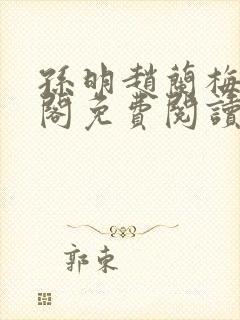 孫明趙蘭梅
閣免費閱讀
郭東